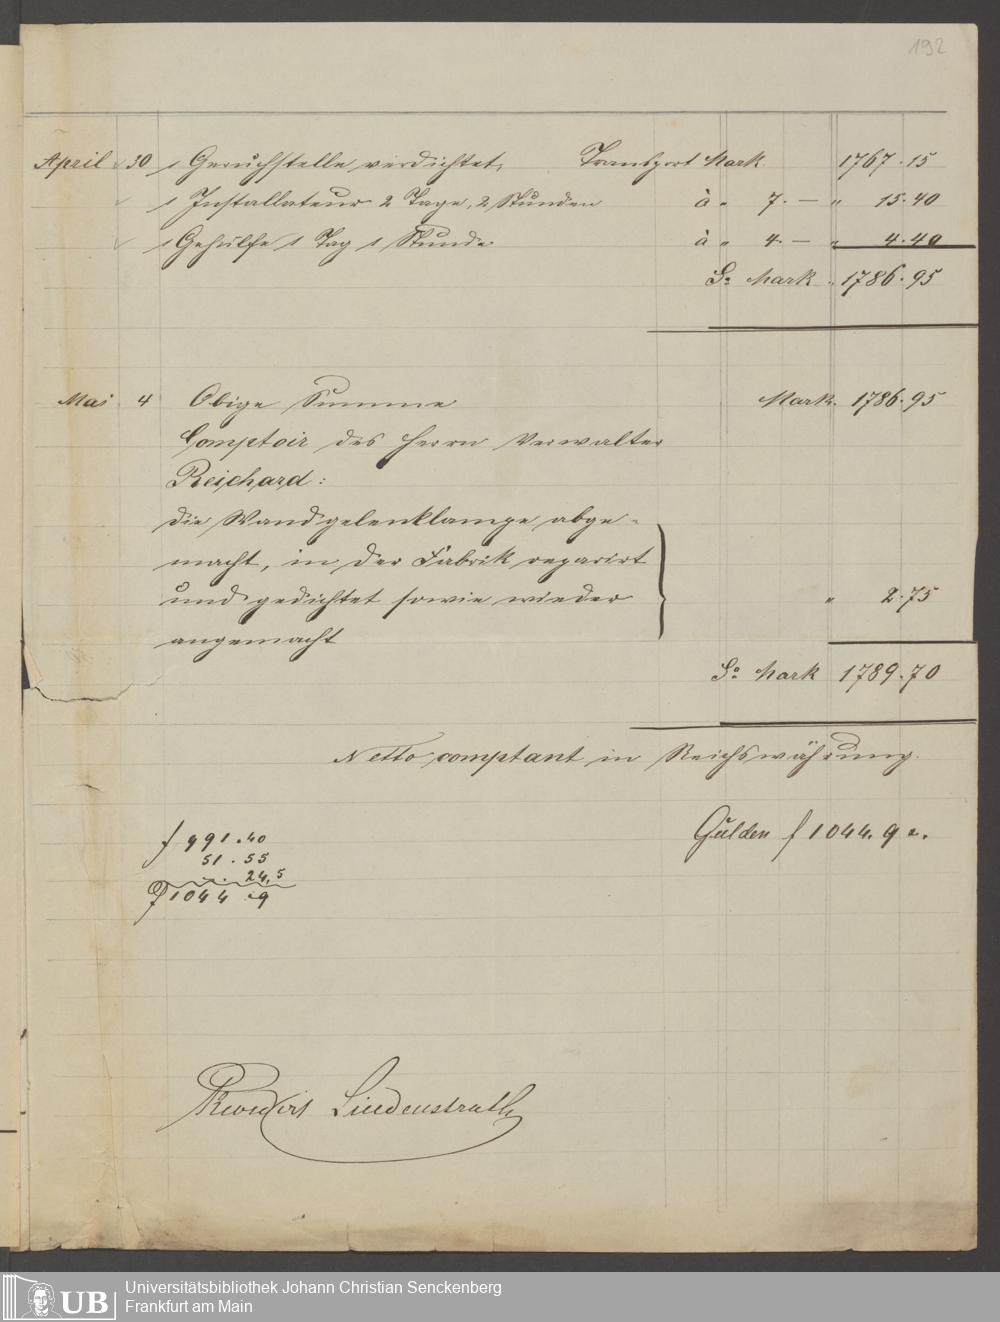 192
April 30 1 Geruchstelle verdichtet, Transport Mark 1767.15
1 Installateur 2 Tage, 2 Stunden à „ 7.— „ 15.40
1 Gehülfe 1 Tag 1 Stunde à „ 4.— „ 4.40
Sa Mark „ 1786.95
Mai 4 Obige Summe Mark. 1786.95
Comptoir des Herrn Verwalter
Reichard:
die Wandgelenklampe abge-
macht, in der Fabrik reparirt
und gedichtet sowie wieder „ 2.75
angemacht
So Mark 1789.70
Netto comptant in Reichswährung.
Gulden f 1044. 9 x.
f 991.40
51.55
24,5
f 1044 9
Revidirt Lindenstruth
UB Universitätsbibliothek Johann Christian Senckenberg
Frankfurt am Main